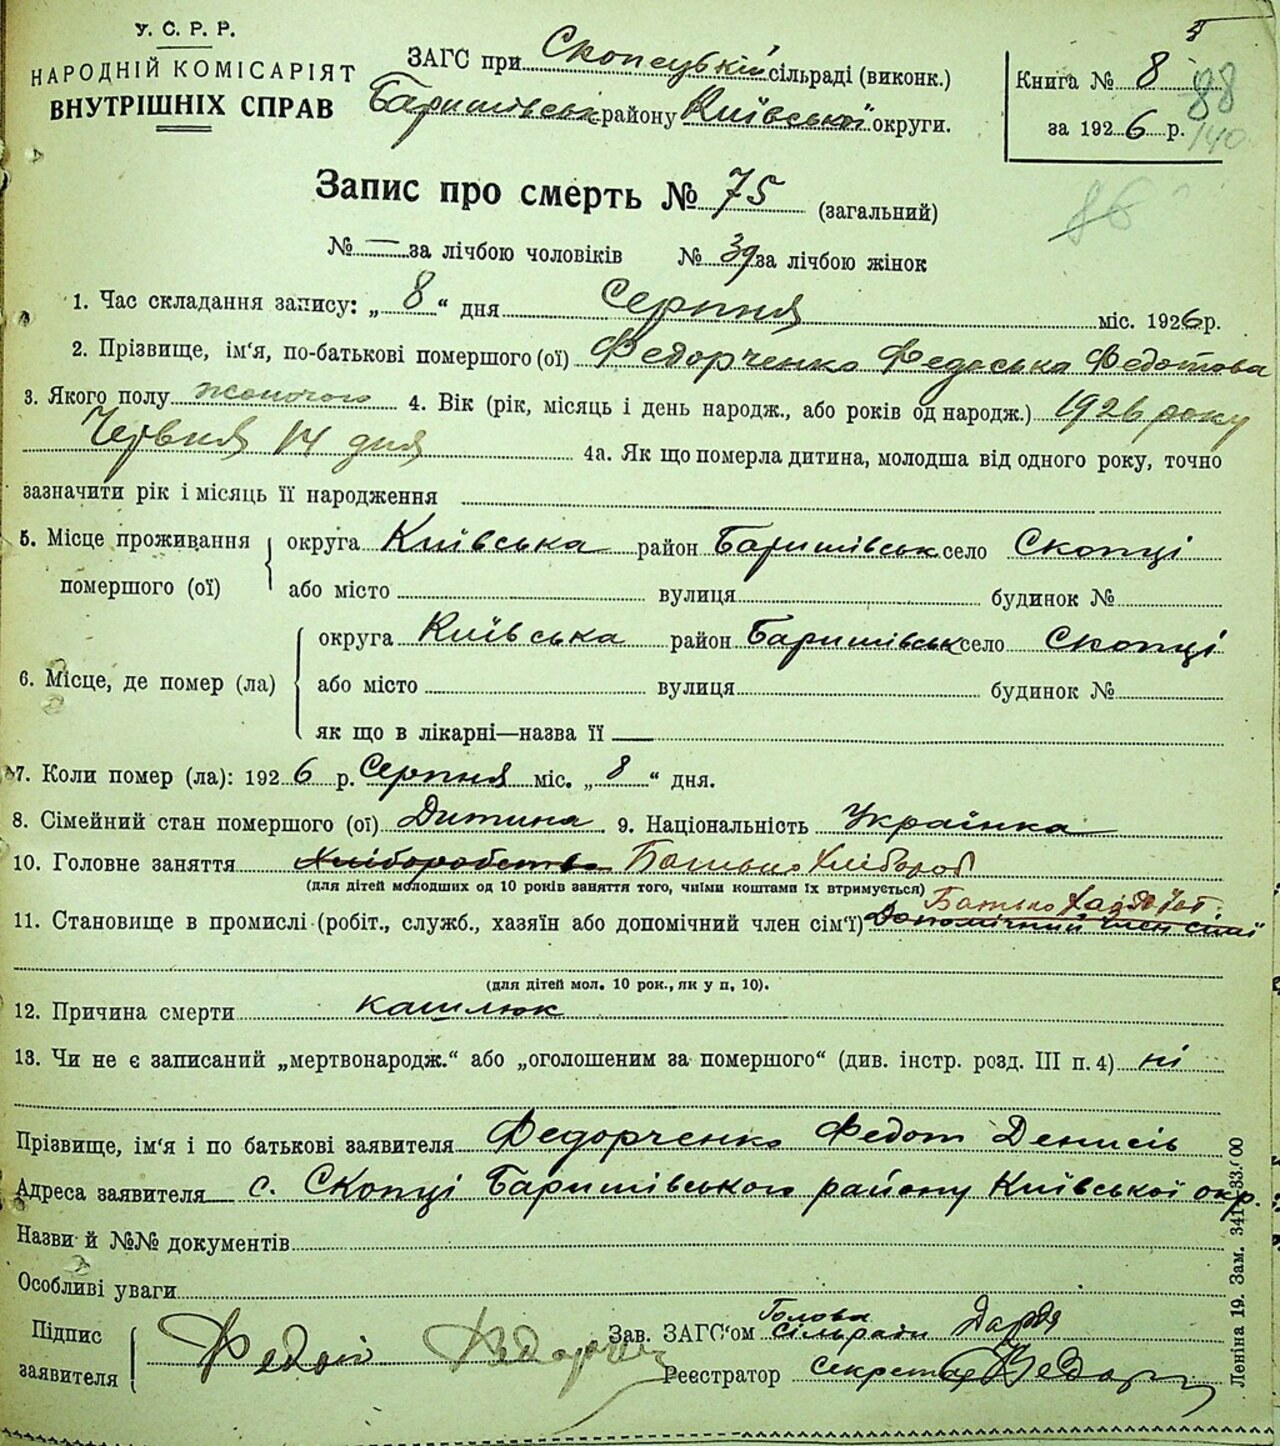 У. С. Р. Р.
НАРОДНІЙ КОМІСАРІЯТ
ВНУТРІШНІХ СПРАВ
ЗАГС при Скопецькій сільраді (виконк.)
Баришівськ району Київської округи.
Книга № 8
88
за 1926 р.
140
86
Запис про смерть № 75 (загальний)
№ — за лічбою чоловіків № 39 за лічбою жінок
1. Час складання запису: „ 8 “ дня Серпня міс. 1926 р.
2. Прізвище, ім‘я, по-батькові помершого (ої) Федорченко Федоська Федотова
3. Якого полу жоночого 4. Вік (рік, місяць і день народж., або років од народж.) 1926 року
Червня 14 дня 4а. Як що померла дитина, молодша від одного року, точно
зазначити рік і місяць її народження
5. Місце проживання помершого (ої) округа Київська район Баришівськ село Скопці
або місто вулиця будинок №
6. Місце, де помер (ла) округа Київська район Баришівськ село Скопці
або місто вулиця будинок №
як що в лікарні—назва її —
7. Коли помер (ла): 1926 р. Серпня міс. „ 8 “ дня.
8. Сімейний стан помершого (ої) Дитина 9. Національність Українка
10. Головне заняття Хліборобство Батько Хлібороб
(для дітей молодших од 10 років заняття того, чиїми коштами їх втримується)
Батько Хазяїн
11. Становище в промислі (робіт., служб., хазяїн або допомічний член сім‘ї) Допомічний член сімї
(для дітей мол. 10 рок., як у п. 10).
12. Причина смерти кашлюк
13. Чи не є записаний „мертвонародж.“ або „оголошеним за помершого“ (див. інстр. розд. III п. 4) ні
Прізвище, ім‘я і по батькові заявителя Федорченко Федот Денисів
Адреса заявителя с. Скопці Баришівського району Київської окр.
Назви й №№ документів
Особливі уваги
Підпис заявителя Федот
Зав. ЗАГС‘ом Голова сільради
Реєстратор секретар
Леніна 19. Зам. 341